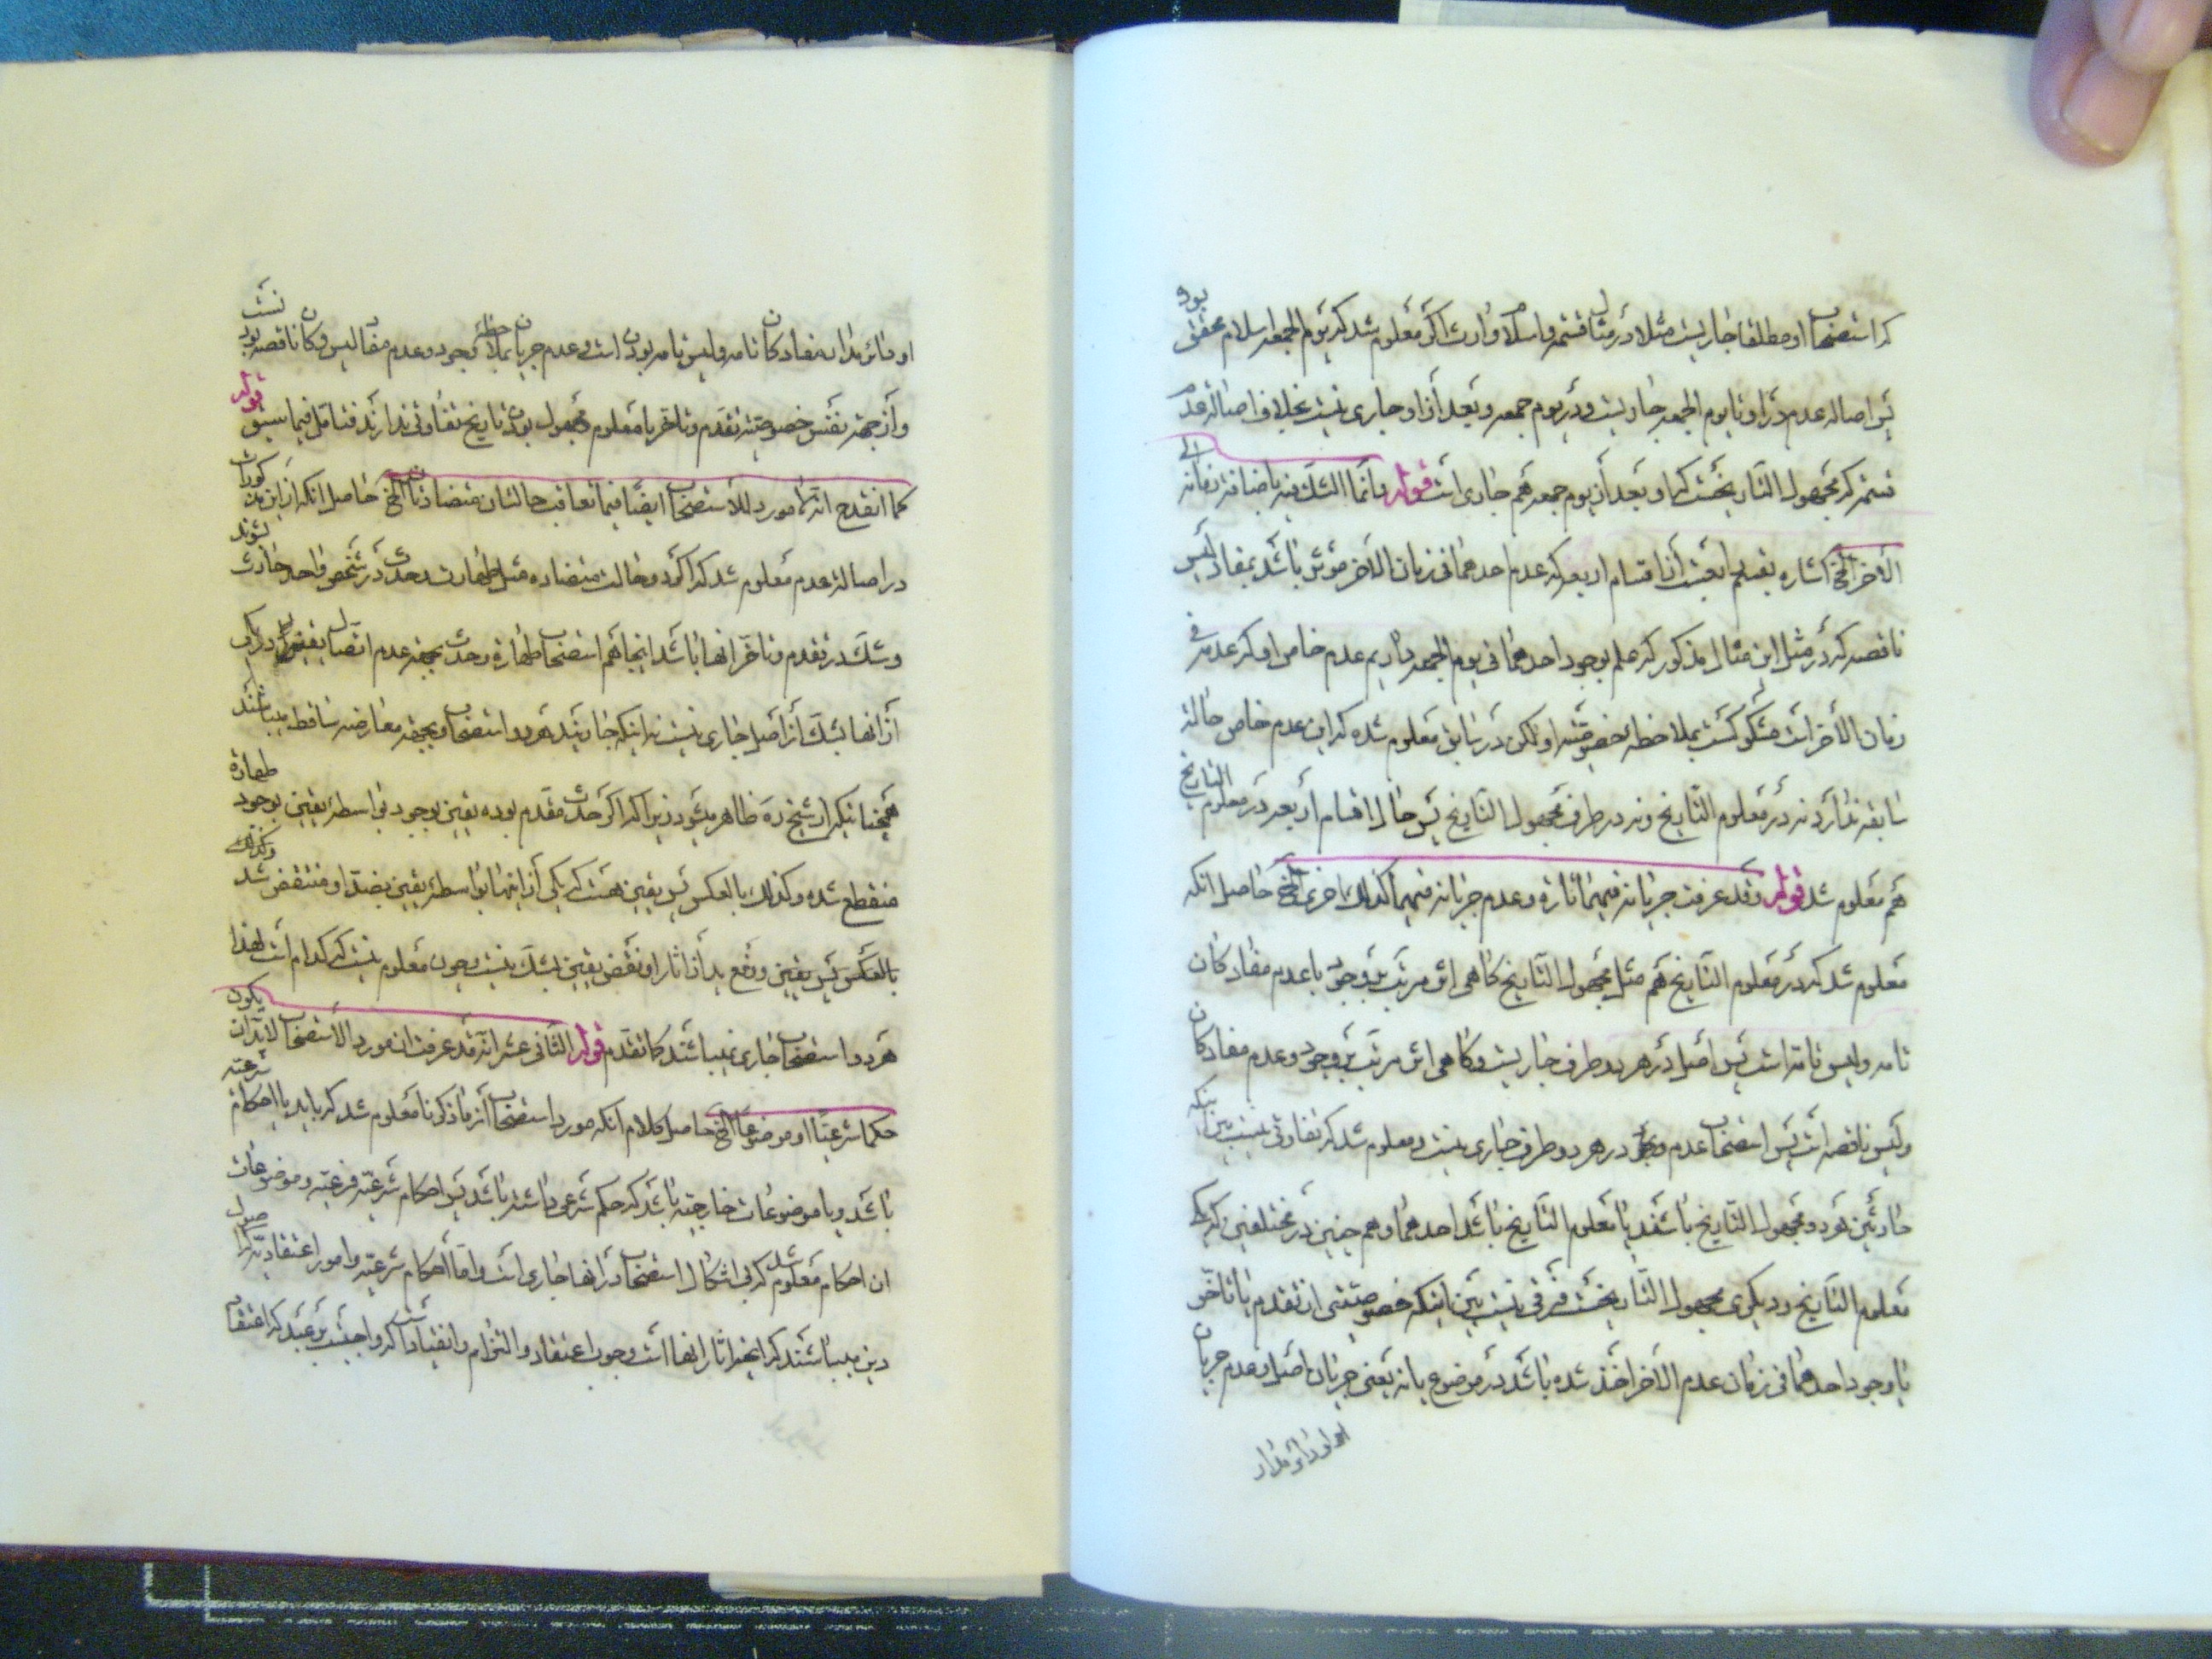 که استصحاب او مطلقا جاریست مثلا در مثال قسمة و اسلام وارث اگر معلوم شد که یوم الجمعه اسلام محقق بود
پس اصاله عدم در او تا یوم الجمعه جاریست و در یوم جمعه و بعد از او جاری نیست بخلاف اصالة عدم
قسمة که مجهول التاریخست که او بعد از یوم جمعه هم جاری است قوله و انما الشک فیه باضافته الی زمانه
الآخر الخ اشاره بقسم رابعست از اقسام اربعه که عدم احدهما فی زمان الآخر مؤثر باشد بمفاد لیس
ناقصه که در مثل این مثال مذکور که علم بوجود احدهما فی یوم الجمعه داریم عدم خاص او که عدمه فی
زمان الآخر است مشکوکست بملاحظه خصوصیته او لکن در سابق معلوم نشده که این عدم خاص حالة
سابقه ندارد نه در معلوم التاریخ و نه در طرف مجهول التاریخ پس حال اقسام اربعه در معلوم التاریخ
هم معلوم شد قوله و قد عرفت جریانه فیهما تارة و عدم جریانه فیهما کذلک اخری الخ حاصل انکه
معلوم شد که در معلوم التاریخ هم مثل مجهول التاریخ کاهی اثر مرتب بر وجود یا عدم مفاد کان
تامه و لیس تامه است پس اصل در هر دو طرف جاریست و کاهی اثر مرتب بر وجود و عدم مفاد کان
و لیس ناقصه است پس استصحاب عدم وجود در هر دو طرف جاری نیست و معلوم شد که تفاوتی نیست بین اینکه
حادثین هر دو مجهول التاریخ باشند یا معلوم التاریخ باشد احدهما و هم چنین در مختلفین که یکی
معلوم التاریخ و دیکری مجهول التاریخست فرقی نیست بین اینکه خصوصیتی از تقدم یا تاخر
یا وجود احدهما فی زمان عدم الآخر اخذ شده باشد در موضوع یا نه یعنی جریان اصل و عدم جریان
او دائر مدار
او دائر مدار مفاد کان تامه و لیس تامه بودن است و عدم جریان بملاحظه وجود و عدم مفاد لیس و کان ناقصه بودنست
و از جهة نفس خصوصیته تقدم و تاخر یا معلوم و مجهول بودن تاریخ تفاوتی ندارند فتامل فیما سبق قوله
کما انقدح انه لا مورد للاستصحاب ایضا فیما تعاقب حالتان متضادتان الخ حاصل انکه از این مذکورات
در اصالة عدم معلوم شد که اگر دو حالت متضاده مثل طهارت و حدث در شخص واحد حادث شوند
و شک در تقدم و تاخر انها باشد اینجا هم استصحاب طهارة و حدث بجهة عدم اتصال بیقین در یکی
از انها بشک از اصل جاری نیست نه اینکه جاریند هر دو استصحاب و بجهة معارضه ساقط میباشند
همچنانیکه از شیخ ره ظاهر میشود زیرا که اگر حدث مقدم بوده یقین بوجود بواسطه یقین بوجود طهارة
منقطع شده و کذلک بالعکس پس یقین هست که یکی از اینها بواسطه یقین بضد او منتقض شد و کذلک
بالعکس پس یقین و رفع ید از اثار او نقض یقین بشک نیست و چون معلوم نیست که کدام است لهذا
هر دو استصحاب جاری نمیباشند کما تقدم قوله الثانی عشر انه قد عرفت ان مورد الاستصحاب لابد ان یکون
حکما شرعیا او موضوعا الخ حاصل کلام انکه مورد استصحاب از ما ذکرنا معلوم شد که باید یا احکام شرعیه
باشد و یا موضوعات خارجیه باشد که حکم شرعی داشته باشد پس احکام شرعیه فرعیه و موضوعات
ان احکام معلوم شد که بی اشکال استصحاب در انها جاری است و اما احکام شرعیه و امور اعتقادیه که اصول
دین میباشند که انجه اثار انها است وجوب اعتقاد و التزام و انقیاد است که واجبست بر عبد که اعتقاد